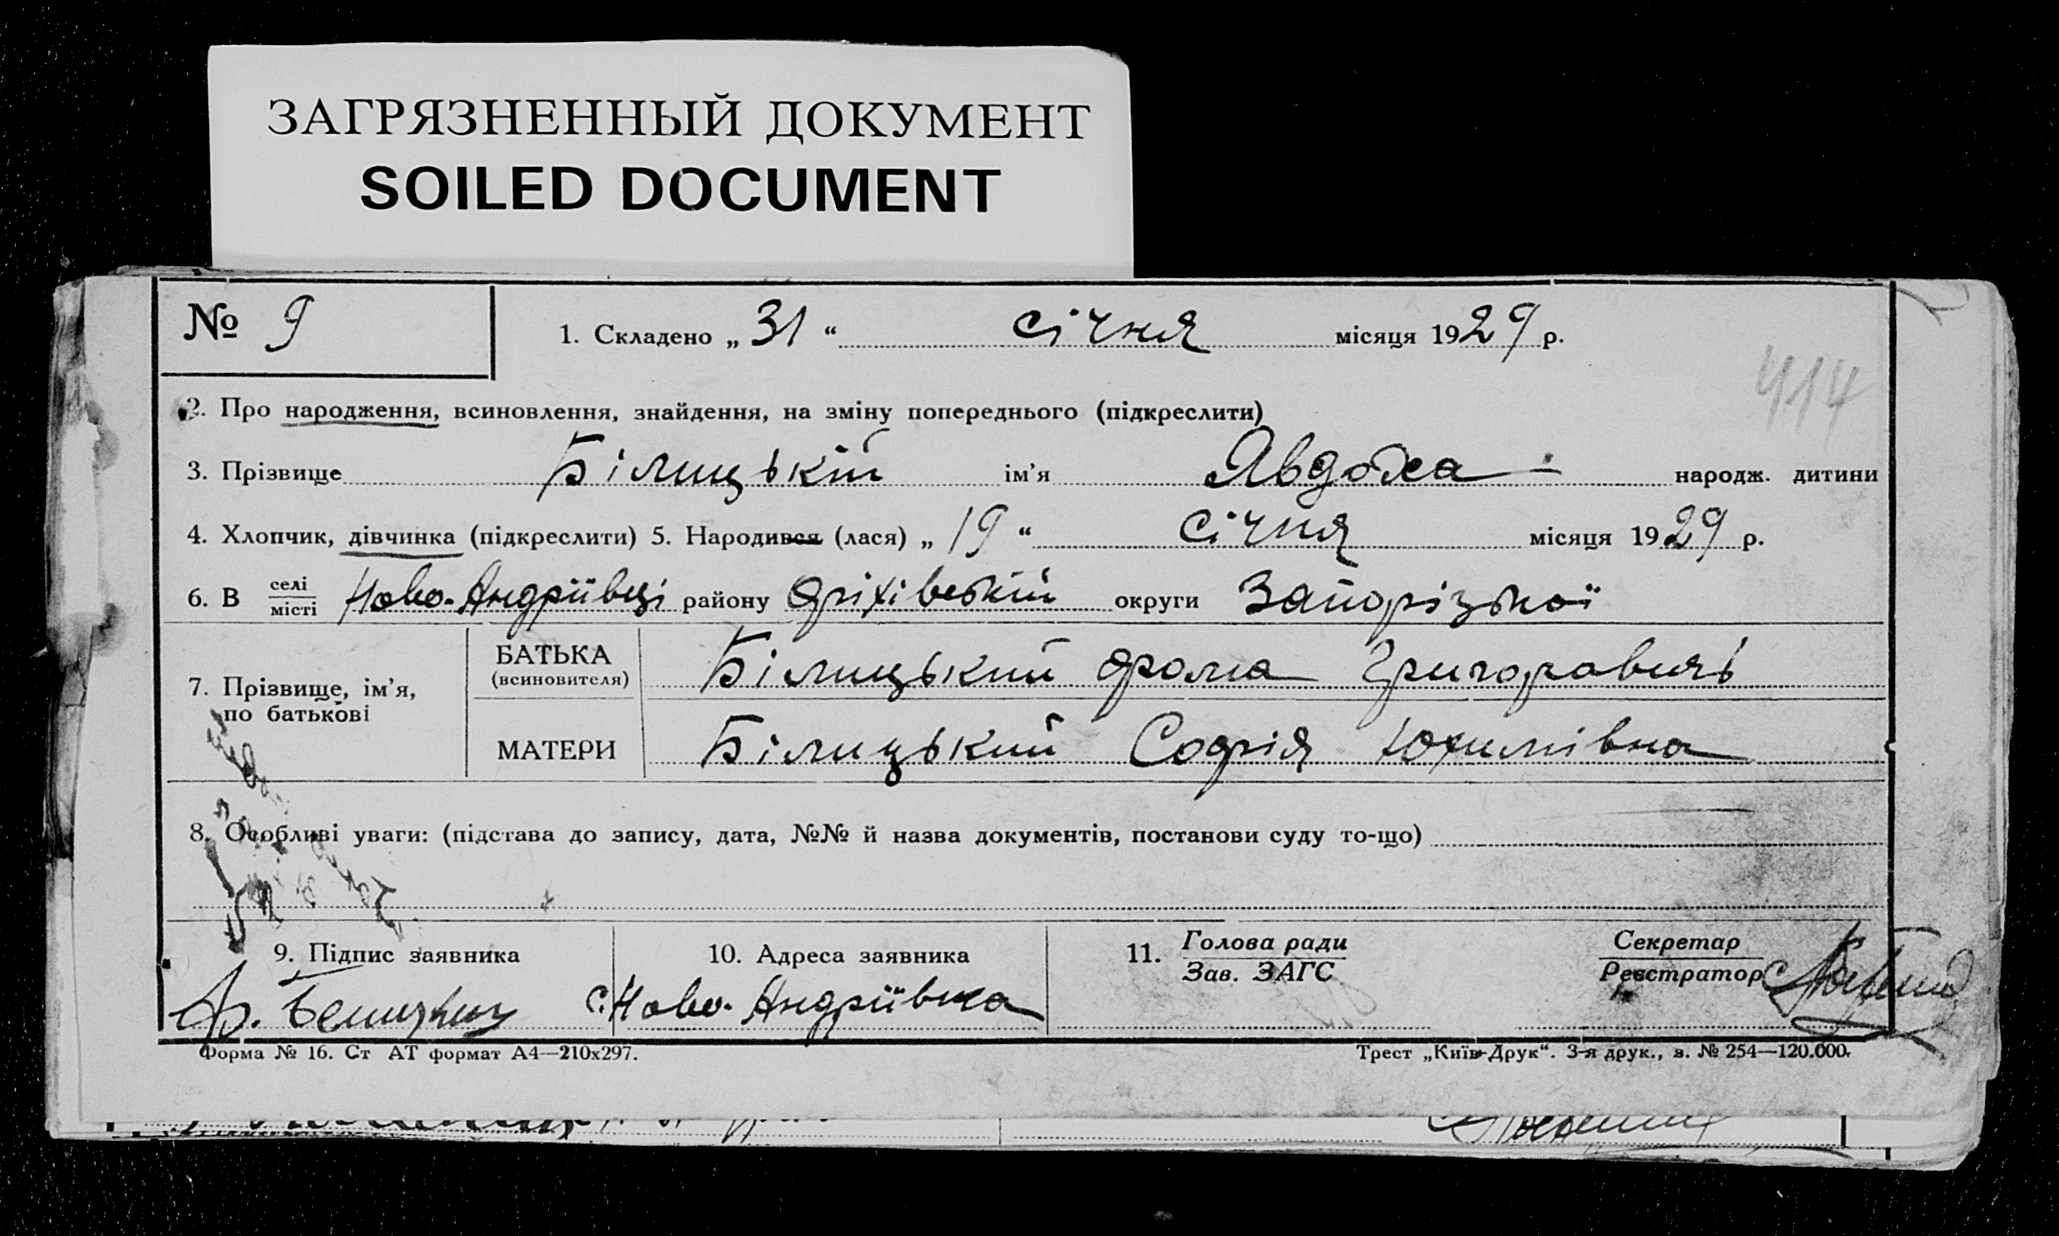 ЗАГРЯЗНЕННЫЙ ДОКУМЕНТ
SOILED DOCUMENT
№ 9
1. Складено „ 31 “ січня місяця 1929 р.
414
2. Про народження, всиновлення, знайдення, на зміну попереднього (підкреслити)
3. Прізвище Білицькій ім’я Явдоха народж. дитини
4. Хлопчик, дівчинка (підкреслити) 5. Народився (лася) „ 19 “ січня місяця 1929 р.
6. В селі місті Ново-Андріївці району Оріхівській округи Запорізької
7. Прізвище, ім’я, по батькові
БАТЬКА (всиновителя) Білицький Фома Григоровичь
МАТЕРИ Білицький Софія Юхимівна
8. Особливі уваги: (підстава до запису, дата, №№ й назва документів, постанови суду то-що)
9. Підпис заявника
10. Адреса заявника
11. Голова ради Зав. ЗАГС
Секретар Реєстратор
с. Ново-Андріївка
Форма № 16. Ст АТ формат А4—210х297.
Трест „Київ-Друк“. 3-я друк., з. № 254—120.000.